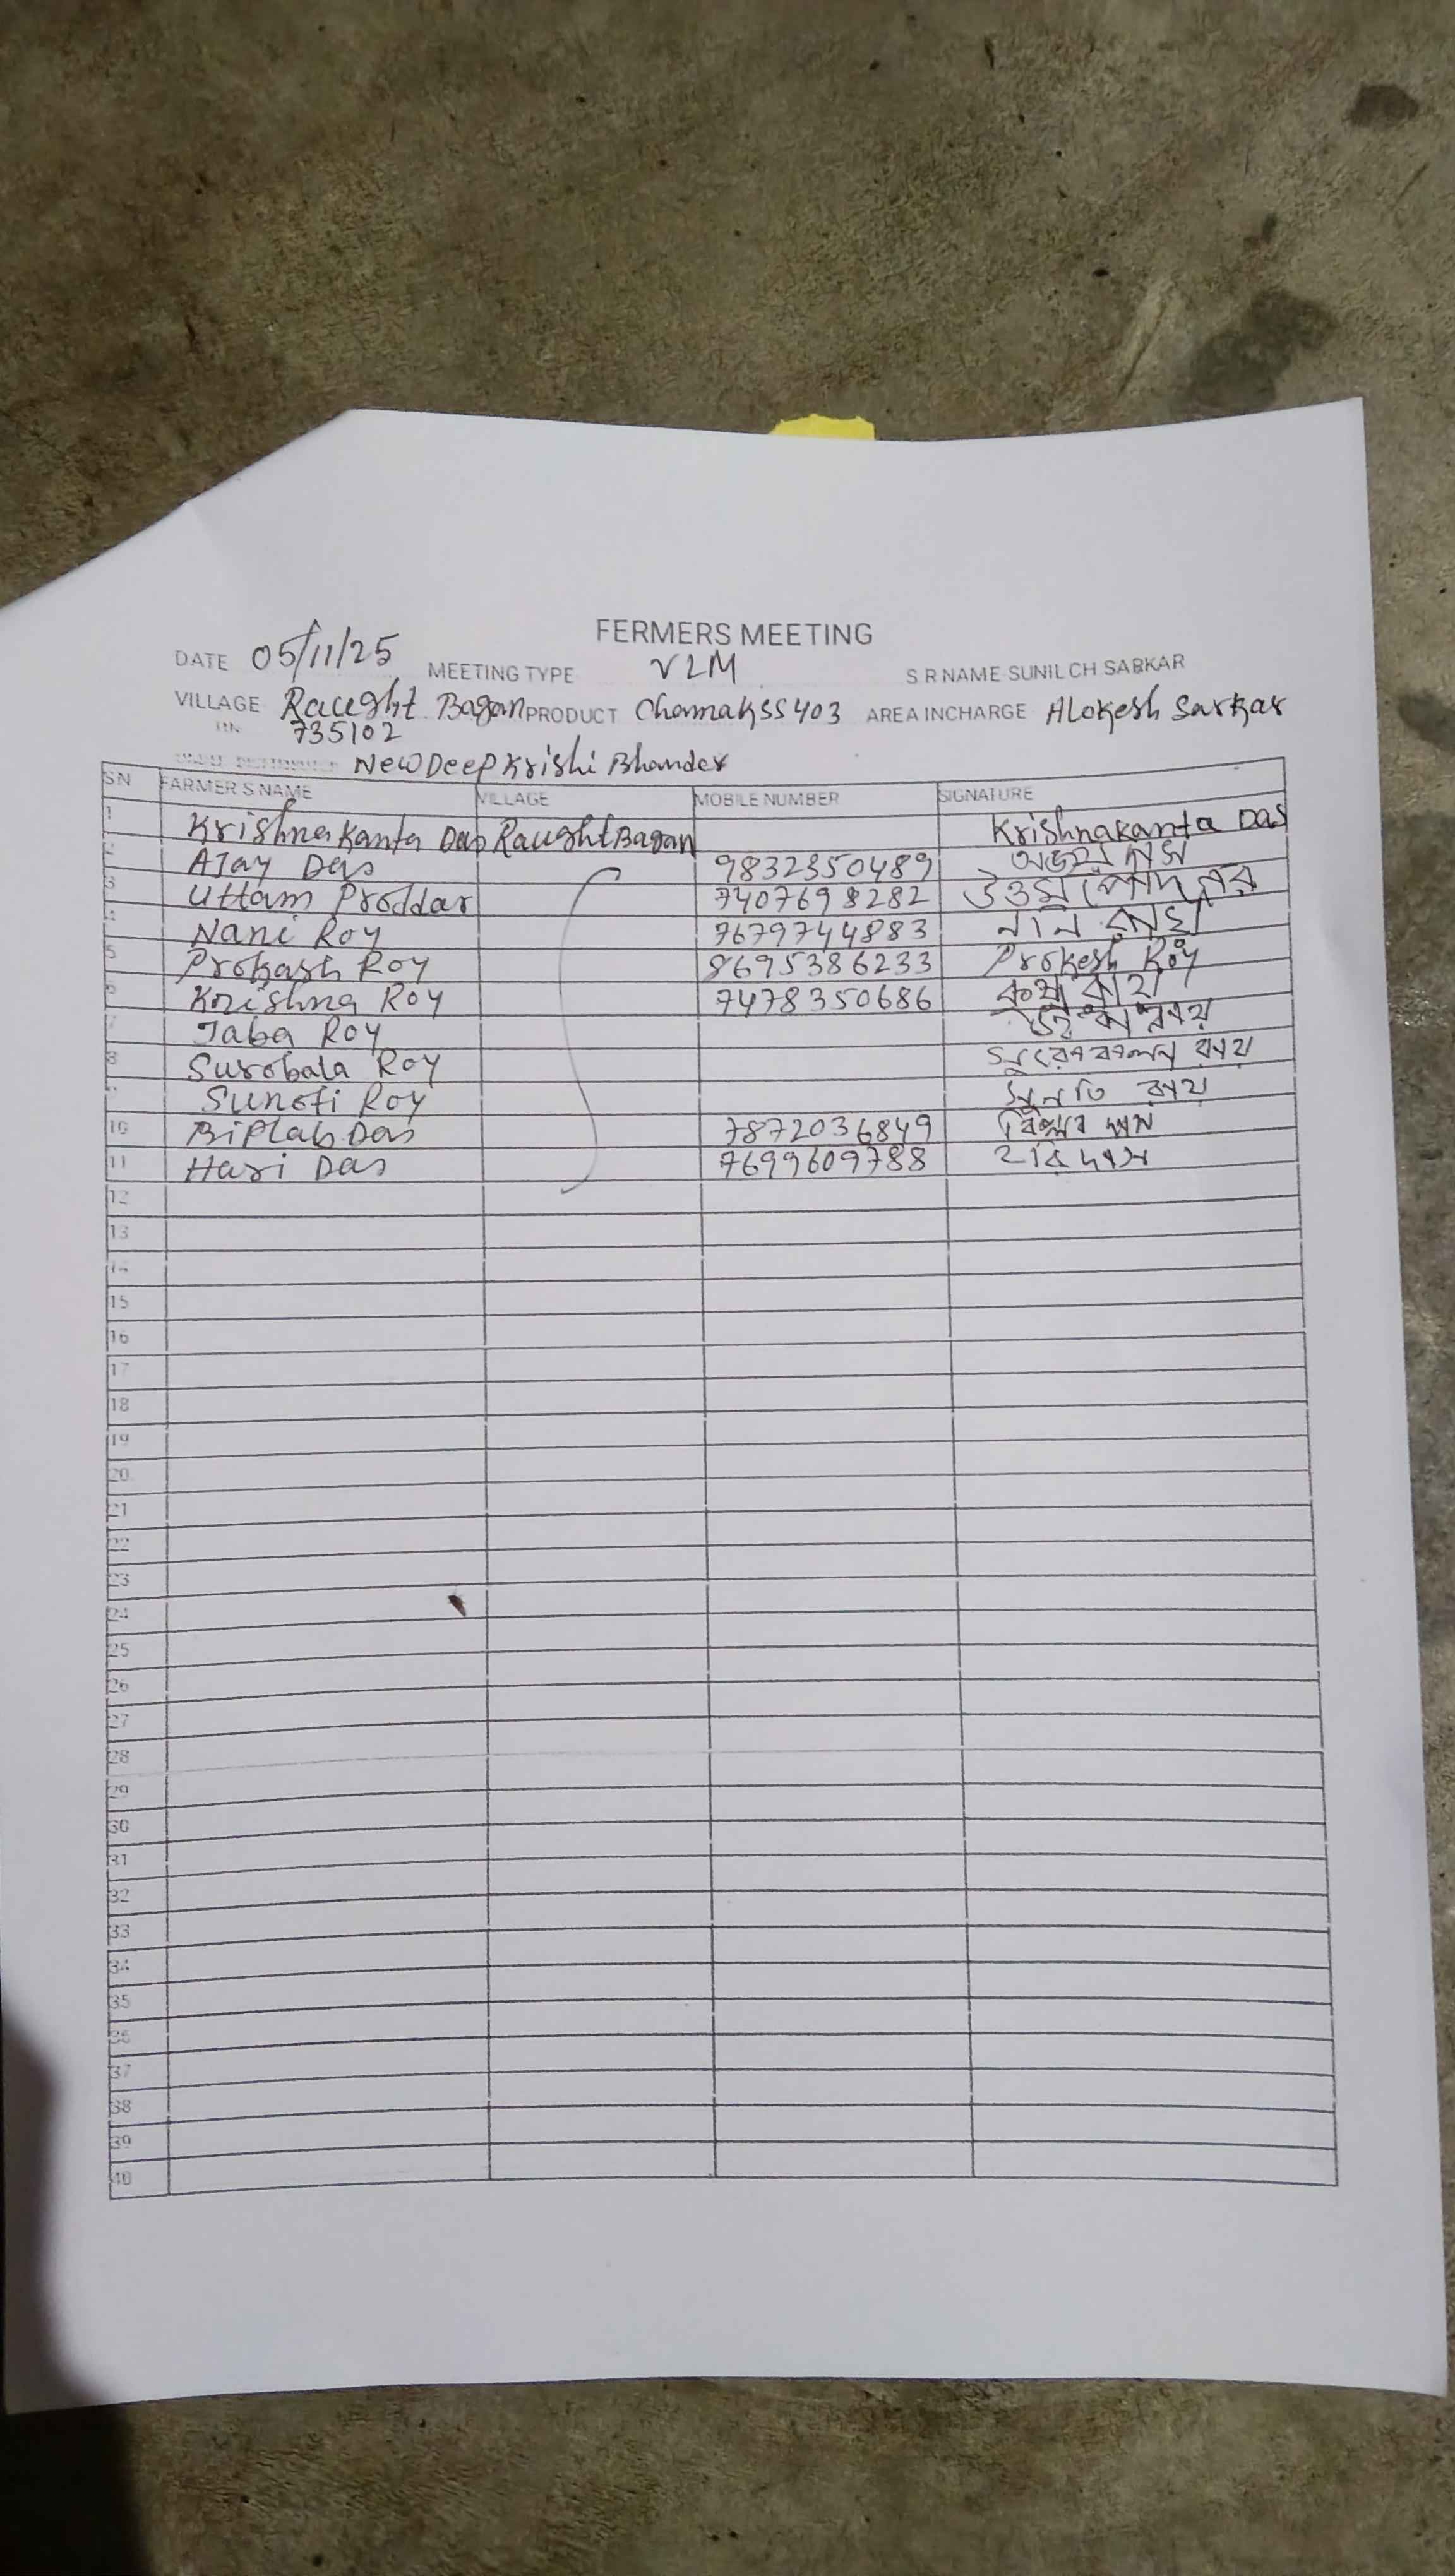 FERMERS MEETING
DATE 05/11/25 MEETING TYPE VLM S R NAME SUNIL CH SARKAR
VILLAGE Raught Bagan PRODUCT Chamak SS 403 AREA INCHARGE Alokesh Sarkar
735102
New Deep Krishi Bhander
SN FARMER S NAME VILLAGE MOBILE NUMBER SIGNATURE
1 Krishna Kanta Das Raught Bagan Krishnakanta Das
2 Ajay Das 9832350489 অজয় দাস
3 Uttam Proddar 7407698282 উত্তম
4 Nani Roy 7679744883 ননি রায়
5 Prokash Roy 8695386233 Prokesh Roy
6 Krishna Roy 7478350686
7 Jaba Roy
8 Surobala Roy রায়
9 Sunoti Roy সুনতি রায়
10 Biplab Das 7872036849 বিপ্লব দাস
11 Hari Das 7699609788 হরি দাস
12
13
14
15
16
17
18
19
20
21
22
23
24
25
26
27
28
29
30
31
32
33
34
35
36
37
38
39
40